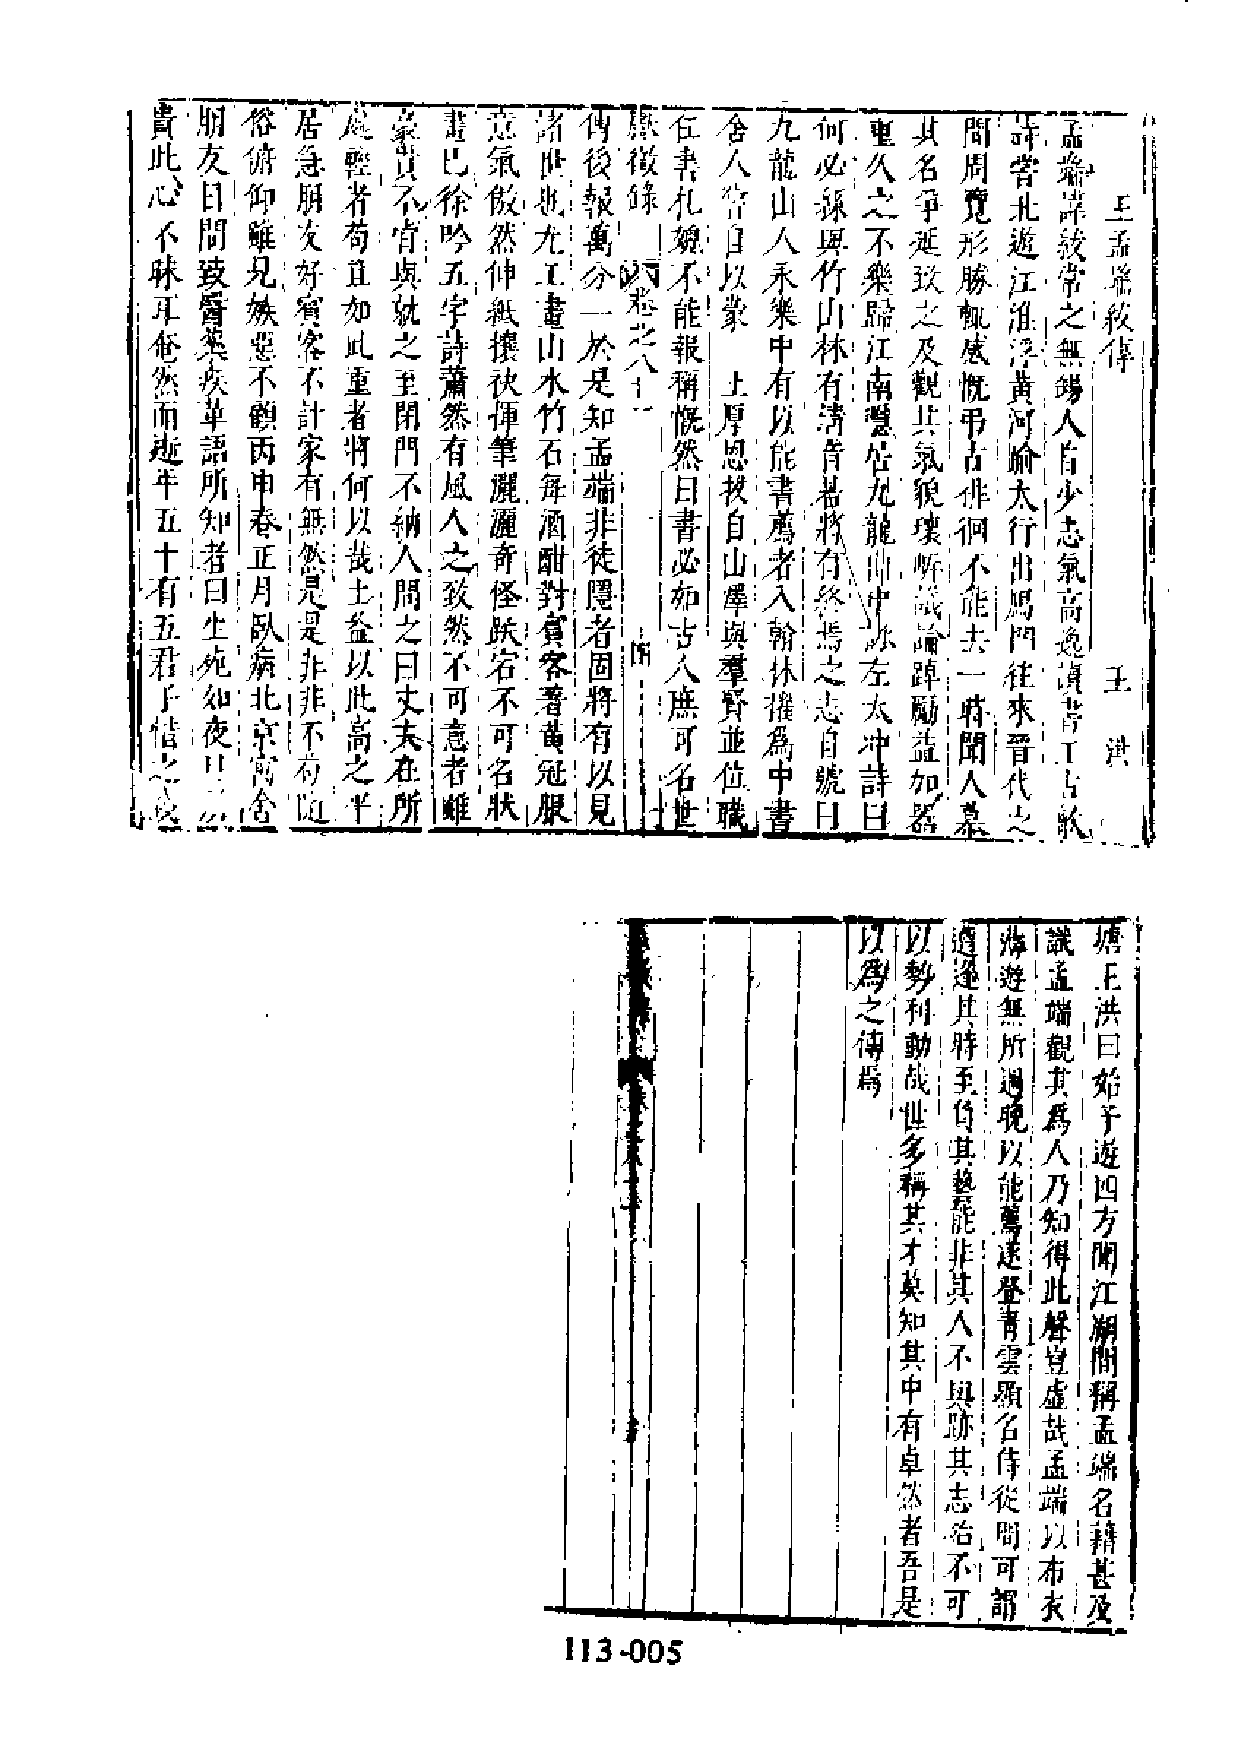 王孟端紱傳
王洪
孟端諱紱常之無錫人自少志氣高逸讀書工古歌
詩嘗北遊江淮浮黃河踰太行出鴈門往來晉代之
間周覽形勝輒感慨弔古徘徊不能去一時聞人慕
其名爭延致之及觀其氣貌瓌 議論踔勵益加器
重久之不樂歸江南隱居九龍山中詠左太冲詩曰
何必絲與竹山林有清音葢將有終焉之志自號曰
九龍山人永樂中有以能書薦者入翰林擢爲中書
舍人嘗自以蒙 上厚恩拔自山澤與羣賢並位職
在書札媿不能報稱慨然曰書必如古人庶可名世
獻徵錄 卷之八十一
傳後報萬分一於是知孟端非徒隱者固將有以見
諸世也尤工畫山水竹石每酒酣對賓客著黃冠服
意氣傲然伸紙攘袂揮筆灑灑奇怪跌宕不可名狀
畫已徐吟五字詩蕭然有風人之致然不可意者雖
豪貴不肯與就之至閉門不納人問之曰丈夫在所
處輕者苟且如此重者將何以哉士益以此高之平
居急朋友好賓客不計家有無然是是非非不苟隨
俗俯仰雖見嫉惡不顧丙申春正月臥病北京寓舍
朋友日問致醫藥疾革語所知者曰生死如夜旦
貴此心不昧耳奄然而逝年五十有五君子惜之
塘王洪曰始予遊四方聞江湖間稱孟端名藉甚及
識孟端觀其爲人乃知得此聲豈虛哉孟端以布衣
薄遊無所遇晚以能薦遂登青雲顯名侍從間可謂
遭逢其時至負其藝能非其人不與跡其志治不可
以勢利動哉世多稱其才莫知其中有卓然者吾是
以爲之傳焉
113-005